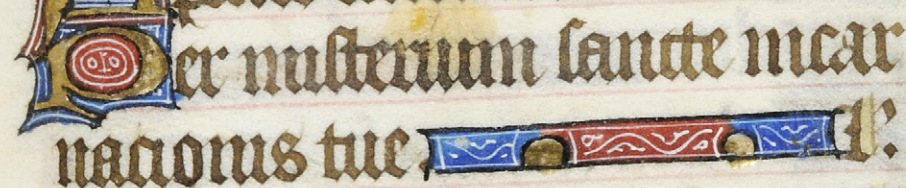 Per misterium sancte incar
nacionis tue l.